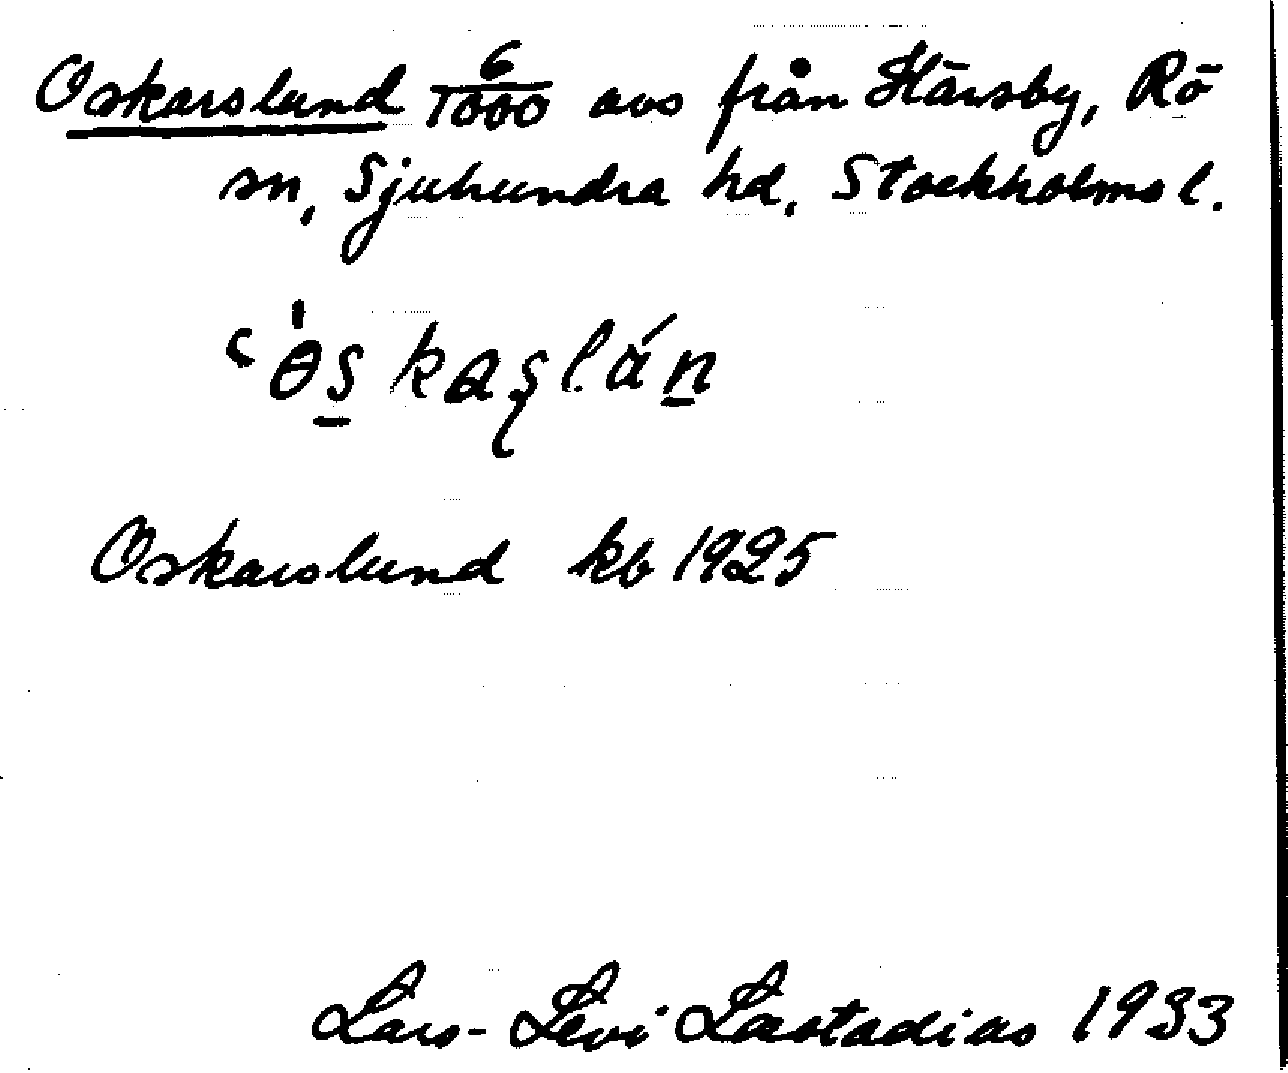 Oskarslund 6/1000 avs från Härsby, Rö
sn, Sjuhundra hd, Stockholms l.
Oskarslund kb 1925
Lars-Levi Læstadius 1933